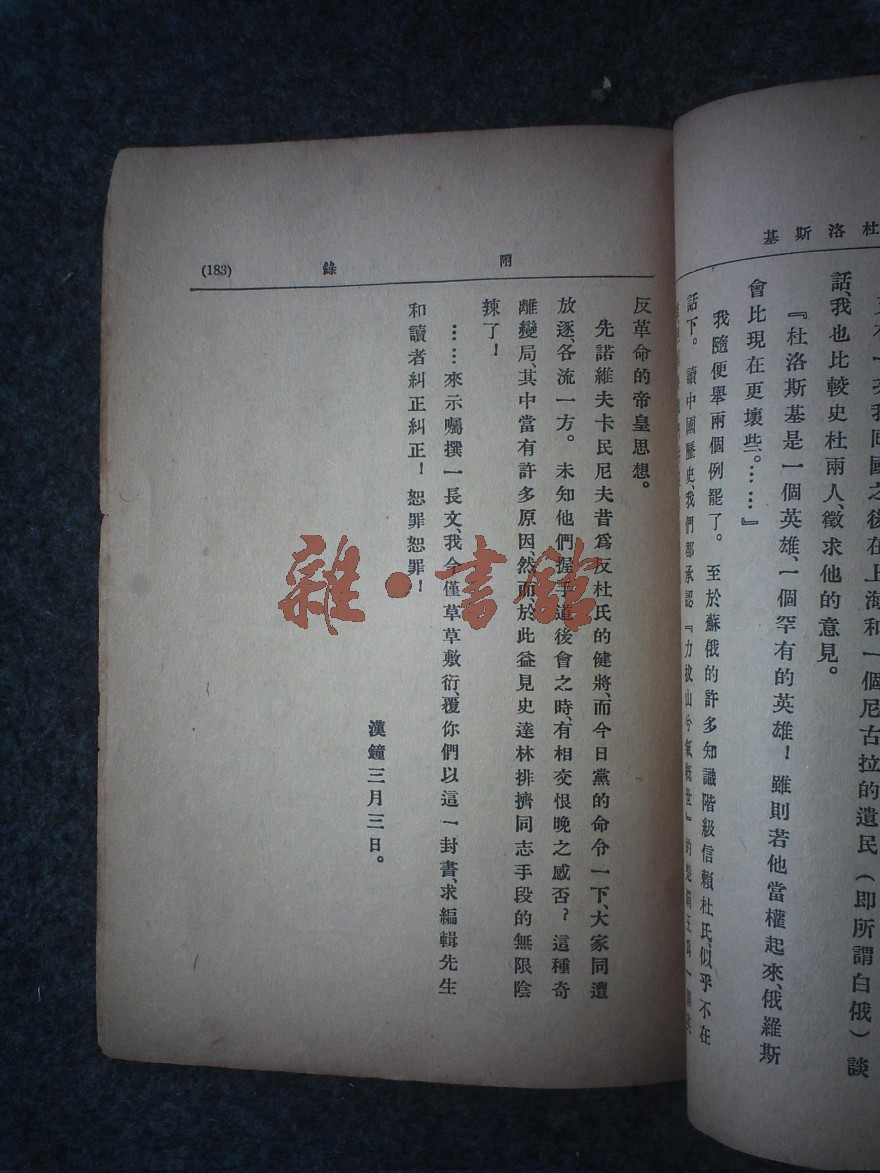 杜洛斯基
我回國之後在上海和一個尼古拉的遺民（即所謂白俄）談
話、我也比較史杜兩人、徵求他的意見。
『杜洛斯基是一個英雄、一個罕有的英雄！雖則若他當權起來、俄羅斯
會比現在更壞些。……』
我隨便舉兩個例罷了。至於蘇俄的許多知識階級信賴杜氏、似乎不在
話下。讀中國歷史、我們都承認『力拔山兮氣概世』的楚霸王爲一
附錄
(183)
反革命的帝皇思想。
先諾維夫卡民尼夫昔爲反杜氏的健將、而今日黨的命令一下、大家同遭
放逐、各流一方。未知他們握手道後會之時、有相交恨晚之感否？這種奇
離變局、其中當有許多原因然而於此益見史達林排擠同志手段的無限陰
辣了！
……來示囑撰一長文、我今僅草草敷衍、覆你們以這一封書、求編輯先生
和讀者糾正糾正！恕罪恕罪！
漢鐘三月三日。
雜·書館